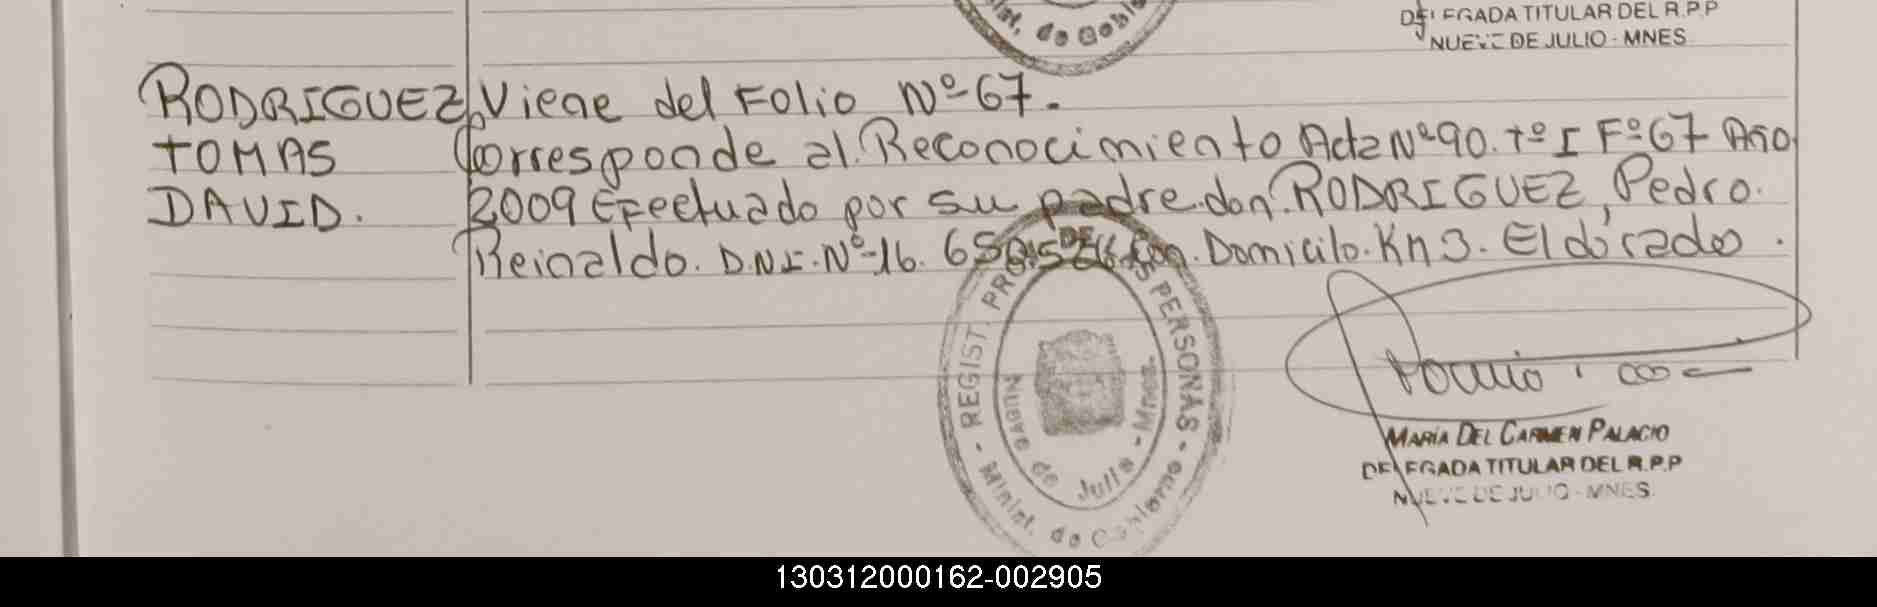 DELEGADA TITULAR DEL R.P.P
NUEVE DE JULIO - MNES
RODRIGUEZ, Viene del Folio Nº-67.
TOMAS Corresponde al. Reconocimiento Acta Nº 90. tº I Fº 67 Año
DAVID. 2009 Efectuado por su padre. don. RODRIGUEZ, Pedro.
Reinaldo. D.N.I. Nº-16. Domicilo. Kn 3. Eldorado.
REGIST. PERSONAS - Minist. de Gobierno -
Nueve de Julio - Mnes.
MARÍA DEL CARMEN PALACIO
DELEGADA TITULAR DEL R.P.P
NUEVE DE JULIO - MNES.
130312000162-002905